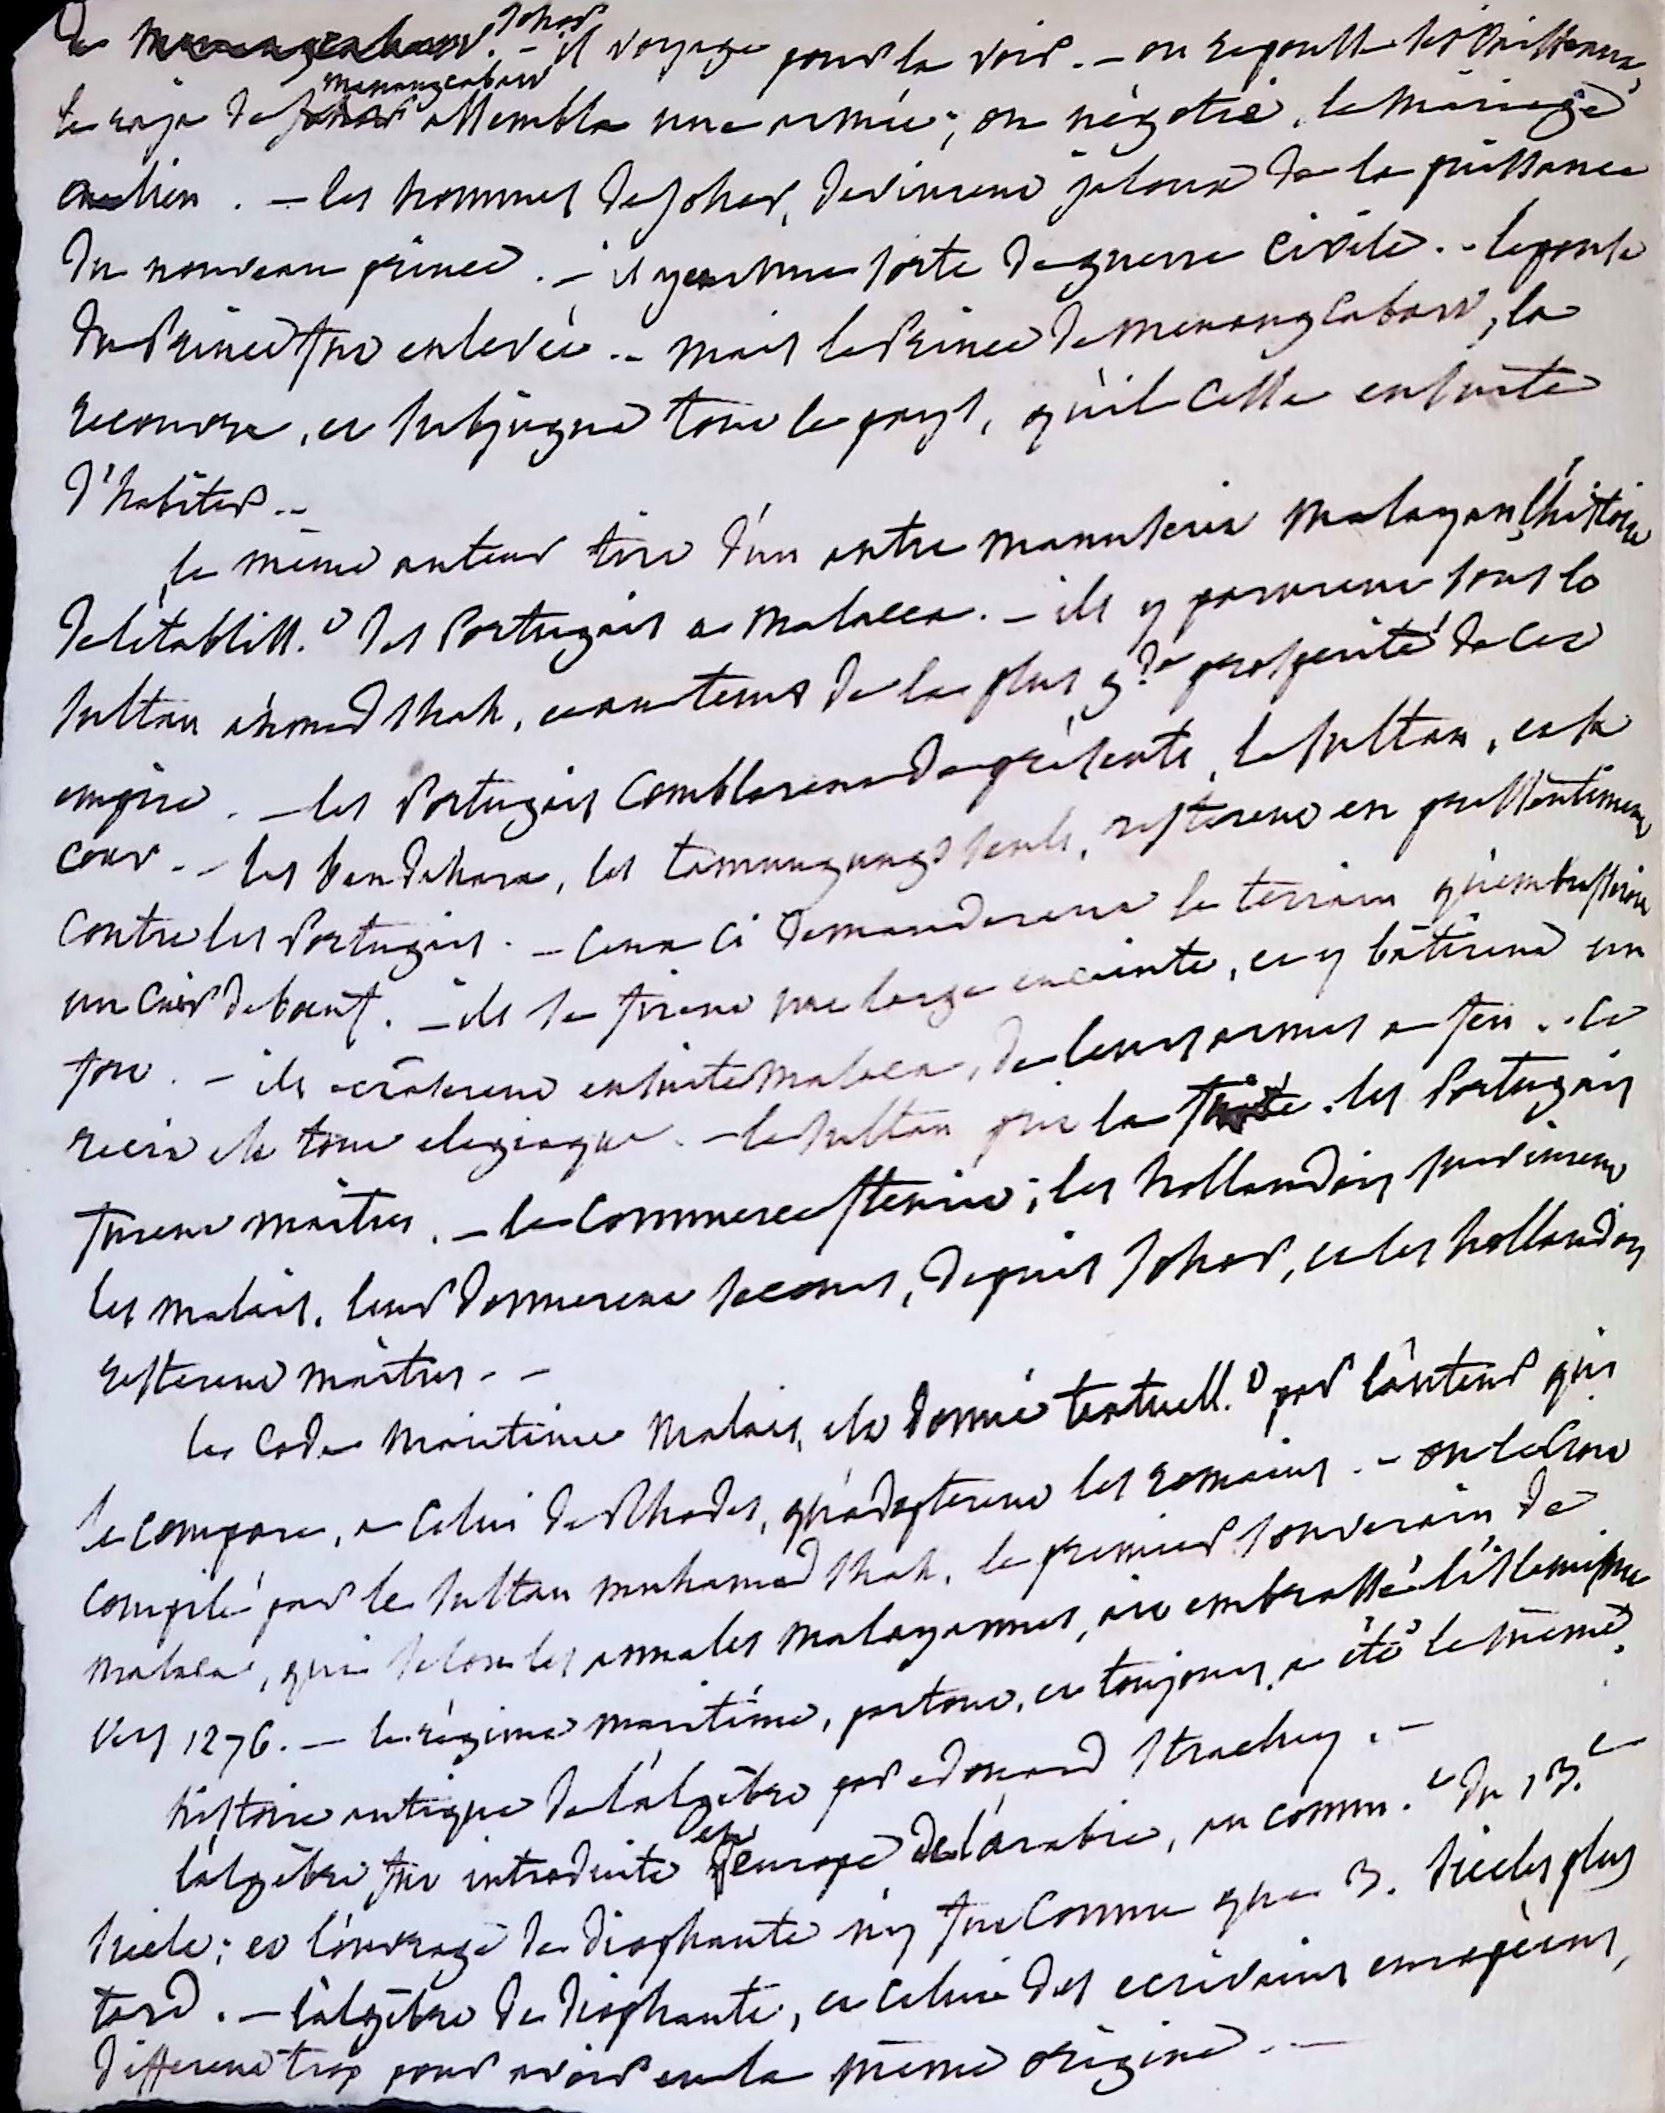 de Johor. – il voyage pour la voir. – on repousse ses vaisseaux
le raja de menangcabow assembla une armée; on négotie, le mariage
a lieu. – les hommes de Johor, devinrent jaloux de la puissance
du nouveau prince. – il y eut une sorte de guerre civile. – l'épouse
du Prince fut enlevée. – mais le Prince de menangcabow, la
recouvra, et subjugua tout le pays, qu'il cessa ensuite
d'habiter. –
le même auteur tire d'un autre manuscrit malayan, l'histoire
de l'établiss.t des Portugais a malacca. – ils y parurent sous le
sultan ahmed shah, et au tems de la plus g.de prosperité de cet
empire. – les Portugais comblerent de présents, le sultan, et sa
cour. – les bendahara, les tamunggungs seuls, resterent en
contre les Portugais. – ceux ci demanderent le terrain
un cuir de boeuf. – ils se firent une large enceinte, et y bâtirent un
fort. – ils écraserent ensuite malaca, de leurs armes a feu. – ce
recit est tout elegiaque. – le sultan prit la fuite. les Portugais
furent maîtres. – le commerce fleurit; les hollandais survinrent
les malais, leur donnerent secours, depuis Johor, et les hollandais
resterent maîtres. –
le code maritime malais, est donné textuell.t par l'auteur qui
le compare, a celui de Rhodes, qu'adopterent les romains. – on le croit
compilé par le sultan muhamed shah, le premier souverain de
malaca, qui selon les annales malayannes, ait embrassé l'islamisme
vers 1276. – le régime maritime, partout, et toujours, a été le même.
histoire antique de l'algèbre par edouard Strachey. –
l'algèbre fut introduite en europe de l'arabie, au comm.t du 13.e
siecle; et l'ouvrage de diophante n'y fut connu que 3. siecles plus
tard. – l'algèbre de diophante, et celui des ecrivains européens,
different trop pour avoir eu la même origine. –